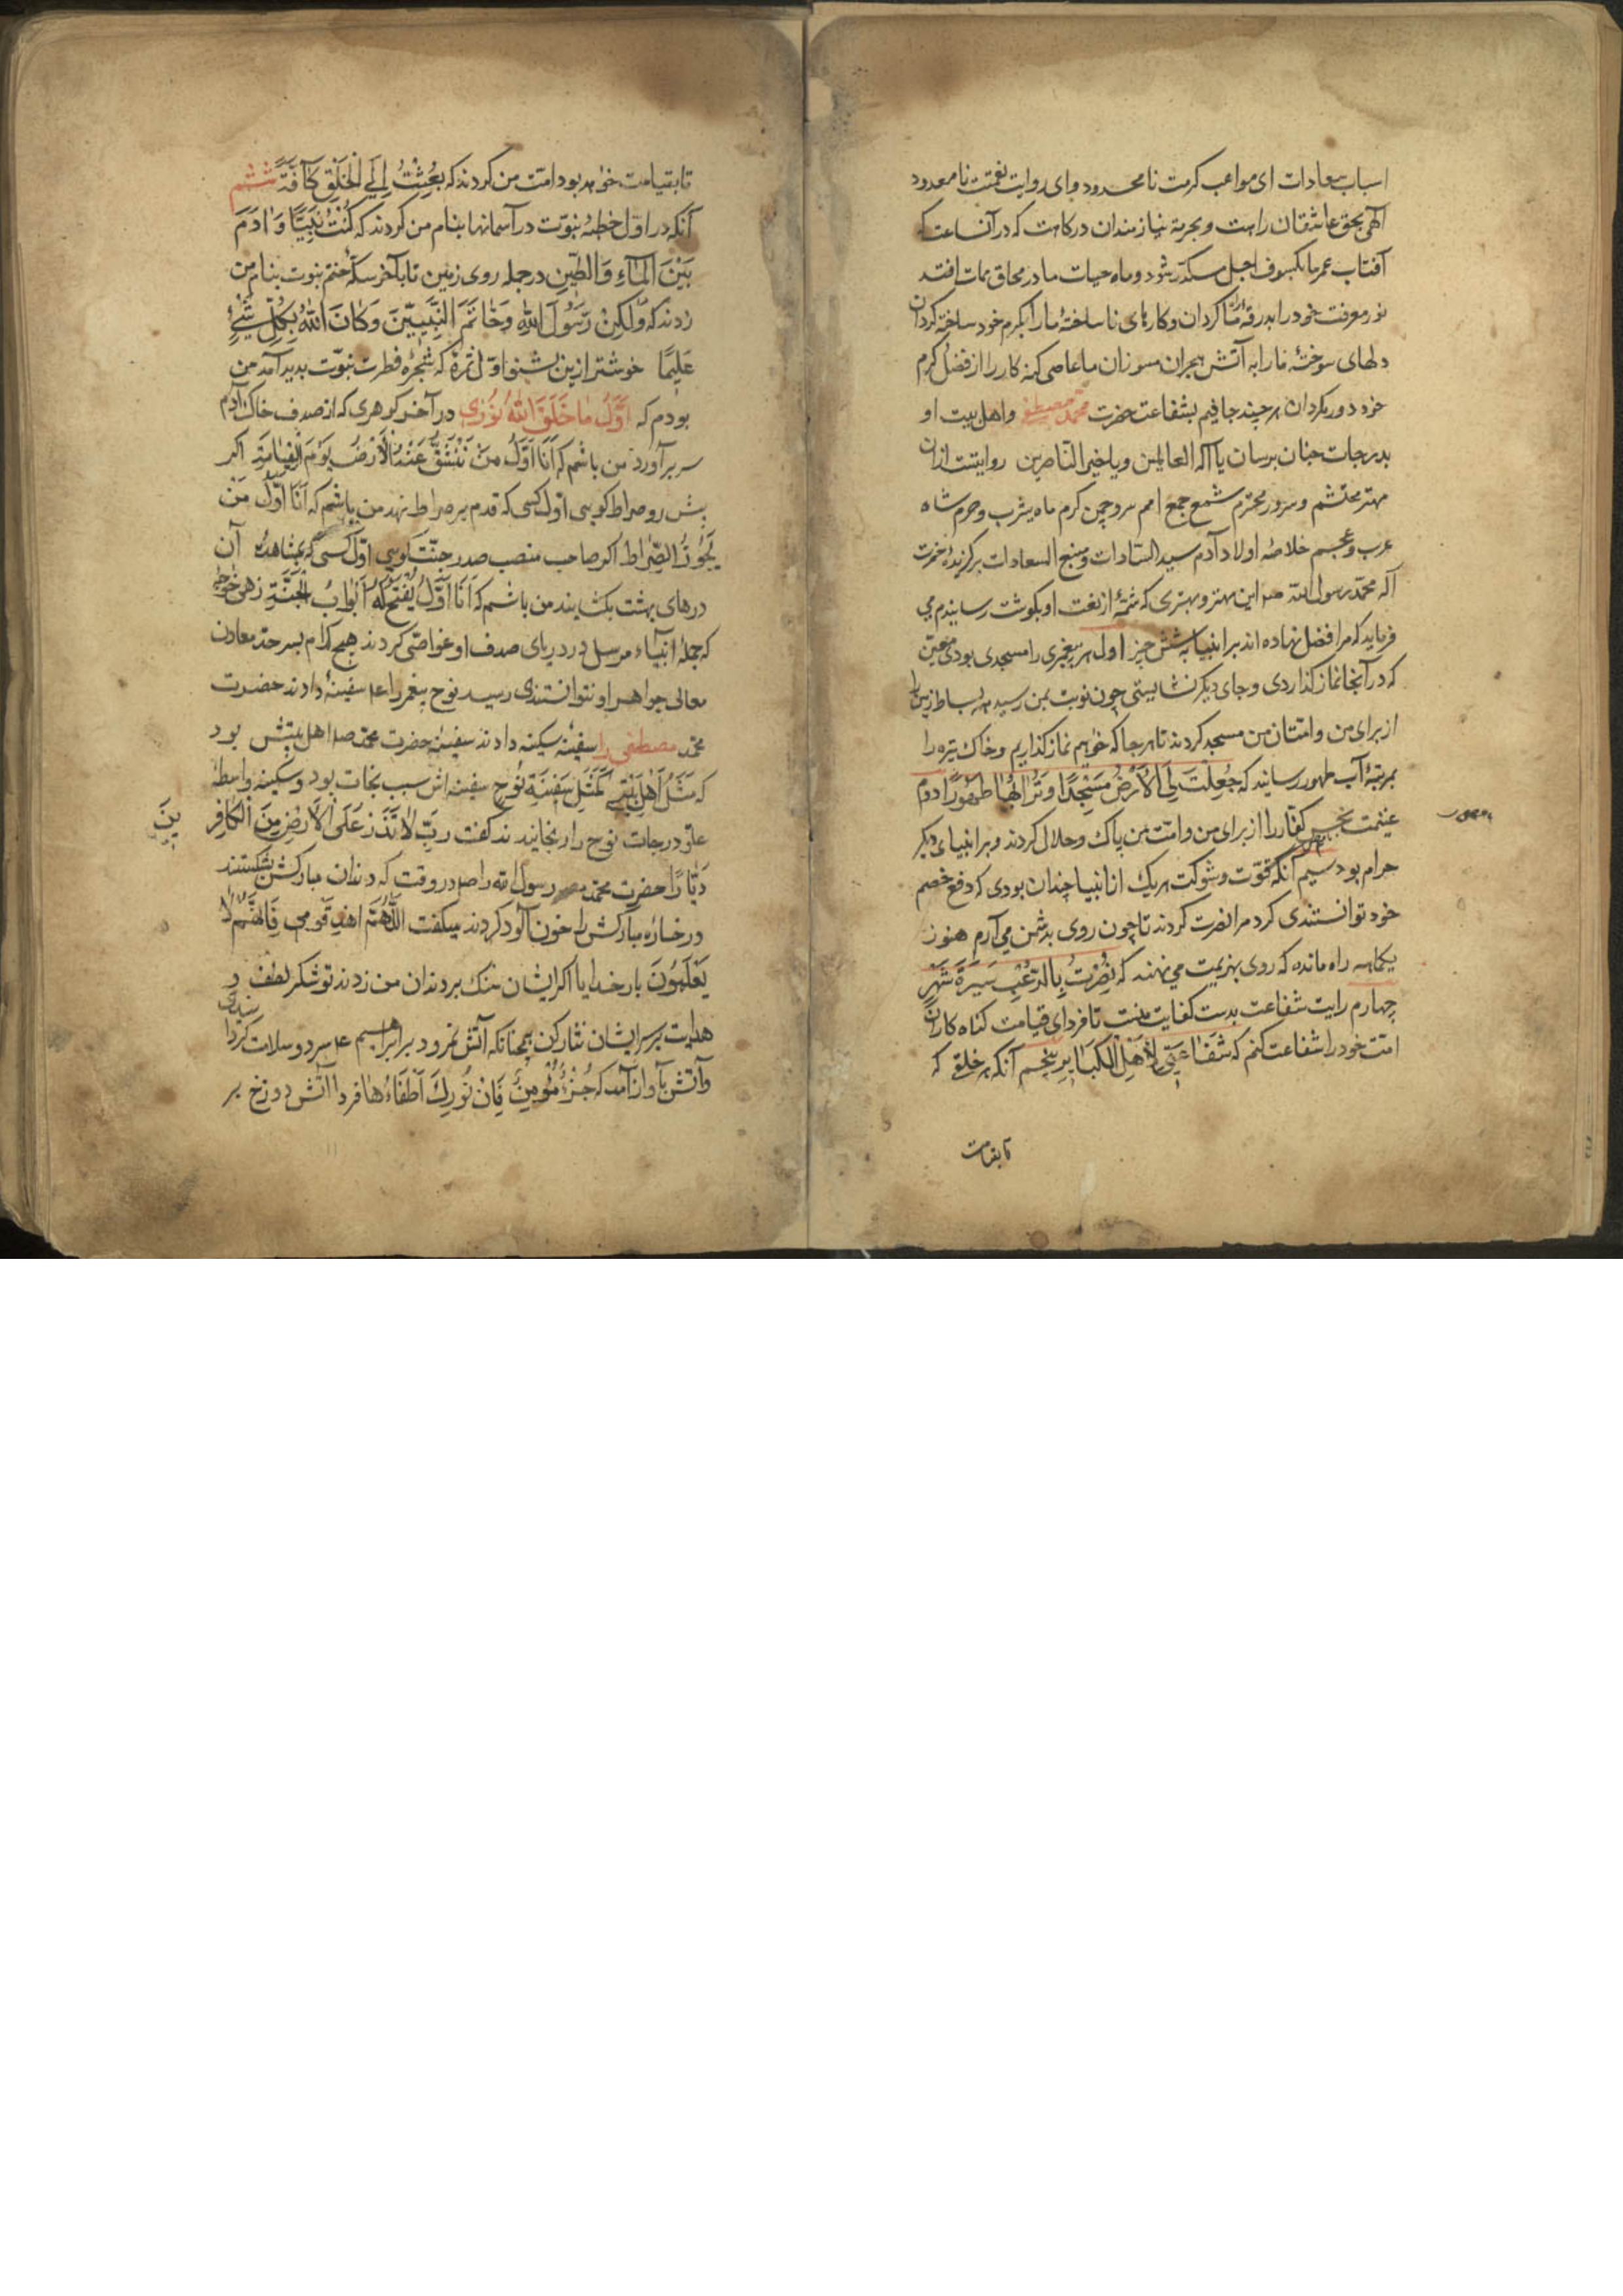 اسباب سعادات ای مواعب کرمت نامحدود و ای روایت نعمتت نامعدود
الهی بحق عاشقان راهت و بحرمة نیازمندان درکاهت که در آن ساعت که
آفتاب عمر ما بکسوف اجل منکدر شود و ماه حیات ما در محاق ممات افتد
نور معرفت خود را بدرقهٔ راه ما کردان و کارهای ناساختهٔ ما را بکرم خود ساخته کردان
دلهای سوختهٔ ما را به آتش هجران مسوزان ما عاصی کنه کار را از فضل کرم
خود دور مکردان هر چند جافیم بشفاعت حضرت محمد مصطفی و اهل بیت او
بدرجات جنان برسان یا اله العالمین و یا خیر الناصرین روایتست از آن
مهتر محتشم و سرور محترم شمع جمع امم سرو چمن کرم ماه یثرب و حرم شاه
عرب و عجم خلاصهٔ اولاد آدم سید السادات و منبع السعادات برکزیدهٔ حضرت
اله محمد رسول الله این مهتر و بهتری که شمهٔ از نعت او بکوشت رسانیدم می
فرماید که مرا فضل نهاده اند بر انبیا به شش چیز اول هر پیغمبری را مسجدی بودی معین
که در آنجا نماز کذاردی و جای دیکر نشایستی چون نوبت بمن رسید همه بساط زمین را
از برای من و امتان من مسجد کردند تا هر جا که خواهیم نماز کذاریم و خاک تیره را
بمرتبهٔ آب طهور رسانید که جُعِلَتْ لِیَ الْاَرْضُ مَسْجِدًا وَ تُرَابُهَا طَهُورًا دوم
غنیمت کفار را از برای من و امت من پاک و حلال کردند و بر انبیای دیکر
حرام بود سیم آنکه قوت و شوکت هر یک از انبیا چندان بودی که دفع خصم
خود توانستندی کرد مرا نصرت کردند تا چون روی بدشمن می آرم هنوز
یکماهه راه مانده که روی بهزیمت می نهند که نُصِرْتُ بِالرُّعْبِ مَسِیرَةَ شَهْرٍ
چهارم رایت شفاعت بدست کفایت منست تا فردای قیامت کناه کاران
امت خود را شفاعت کنم که شَفَاعَتِی لِاَهْلِ الْکَبَایِرِ پنجم آنکه هر خلق که
تا بقیامت
تا بقیامت خواهد بود امت من کردند که بُعِثْتُ اِلَی الْخَلْقِ کَافَّةً ششم
آنکه در اول خطبهٔ نبوت در آسمانها بنام من کردند که کُنْتُ نَبِیًّا وَ اٰدَمَ
بَیْنَ الْمَاءِ وَالطِّینِ در جمله روی زمین تا بآخر سکهٔ ختم نبوت بنام من
زدند که وَلٰکِنْ رَسُولَ اللّٰهِ وَخَاتَمَ النَّبِیِّینَ وَکَانَ اللّٰهُ بِکُلِّ شَیْءٍ
عَلِیمًا خوشتر ازین بشنو اول ثمرهٔ که شجرهٔ فطرت نبوت پدید آمد من
بودم که اَوَّلُ مَا خَلَقَ اللّٰهُ نُورِی در آخر کوهری که از صدف خاک آدم
سر برآورد من باشم که اَنَا اَوَّلُ مَنْ تَنْشَقُّ عَنْهُ الْاَرْضُ یَوْمَ الْقِیَامَةِ اکر
پیش رو صراط کویی اول کسی که قدم بر صراط نهد من باشم که اَنَا اَوَّلُ مَنْ
یَجُوزُ الصِّرَاطَ اکر صاحب منصب صدر جنت کویی اول کسی که بمشاهدهٔ آن
درهای بهشت بکشایند من باشم که اَنَا اَوَّلُ یُفْتَحُ لَهُ اَبْوَابُ الْجَنَّةِ زهی خواجه
که جمله انبیاء مرسل در دریای صدف او غواصی کردند هیچ کدام بسرحد معادن
معالی جواهر او نتوانستندی رسید نوح پیغمبر را ع سفینهٔ دادند حضرت
محمد مصطفی را سفینه سکینه دادند سفینهٔ حضرت محمد اهل بیتش بود
که مَثَلُ اَهْلِ بَیْتِی کَمَثَلِ سَفِینَةِ نُوحٍ سفینه اش سبب نجات بود و سکینه واسطهٔ
علو درجات نوح را رنجانیدند کفت رَبِّ لَا تَذَرْ عَلَی الْاَرْضِ مِنَ الْکَافِرِ
ینَ
دَیَّارًا حضرت محمد رسول الله را در وقت که دندان مبارکش بشکستند
و رخسارهٔ مبارکش را خون آلود کردند میکفت اللّٰهُمَّ اهْدِ قَوْمِی فَاِنَّهُمْ لَا
یَعْلَمُونَ بار خدایا اکر ایشان سنک بر دندان من زدند تو شکر لطف و
هدایت بر سر ایشان نثار کن همچنانکه آتش نمرود بر ابراهیم ع سرد و سلامت کردا
نیدی
و آتش بآواز آمد که جُزْ یَا مُؤْمِنُ فَاِنَّ نُورَکَ اَطْفَاءُ هَا فردا آتش دوزخ بر